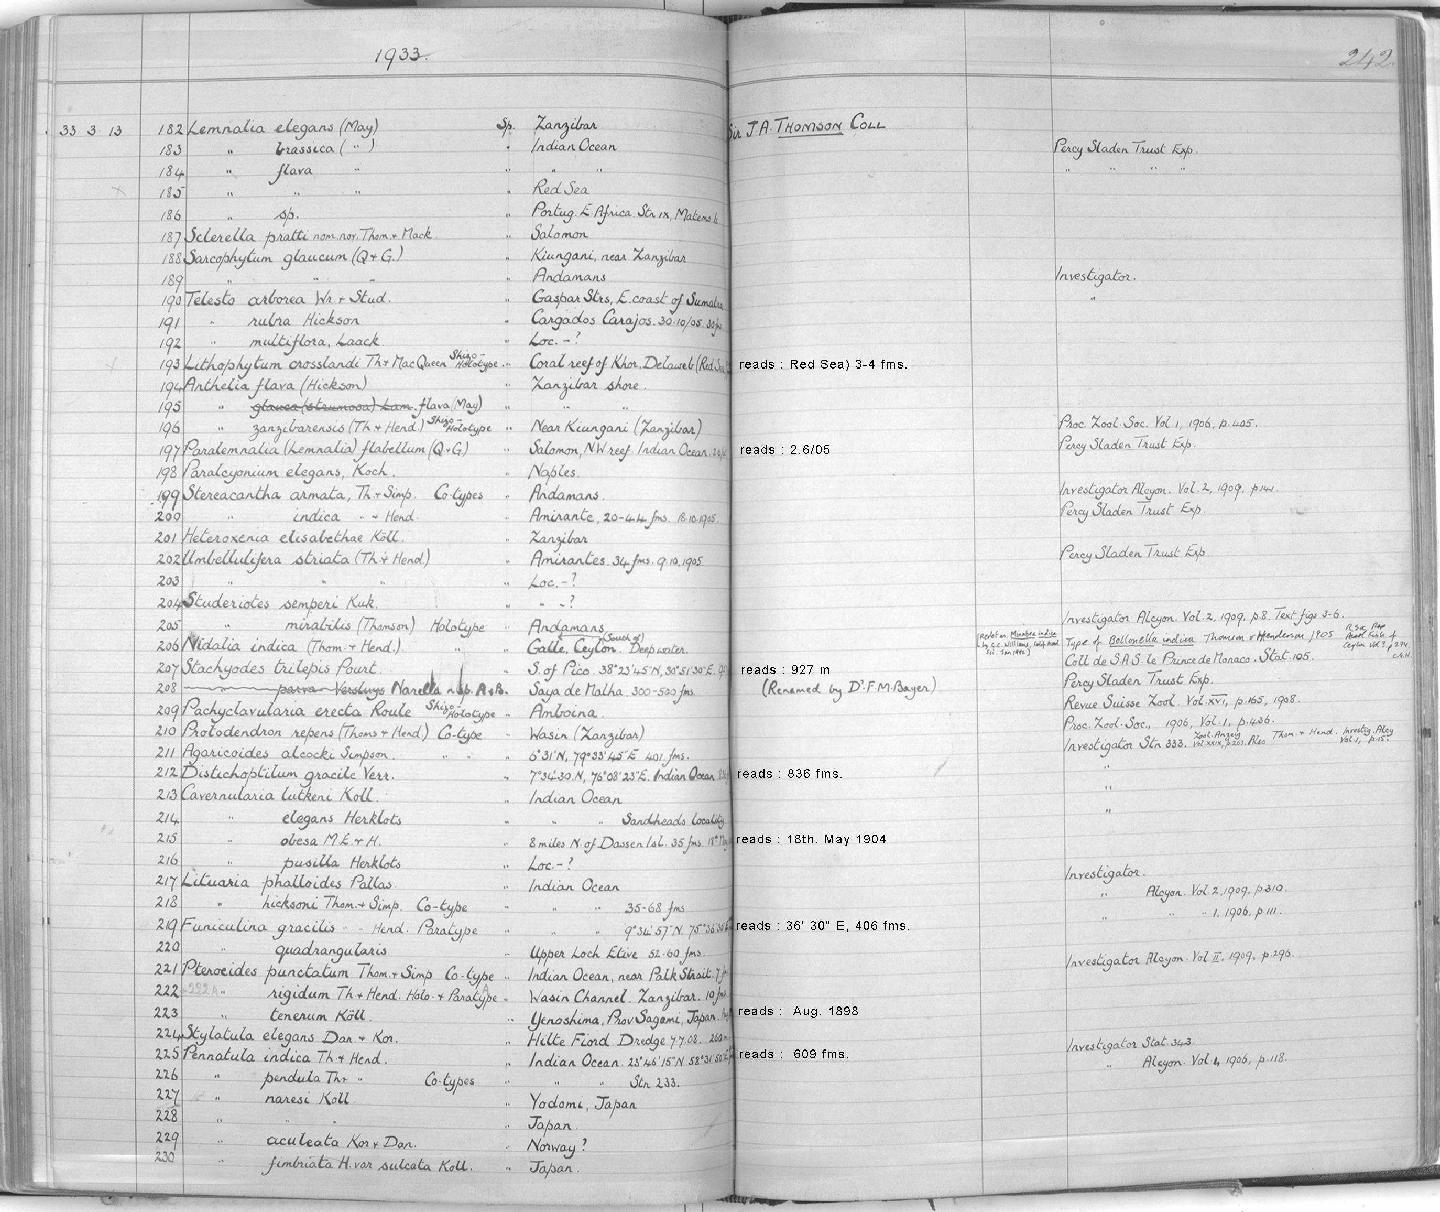 1933.
242.
33 3 13 182 Lemnalia elegans (May) Sp. Zanzibar Sir J.A. THOMSON COLL
183 " brassica ( " ) " Indian Ocean Percy Sladen Trust Exp.
184 " flava " " " " " " " "
185 " " " " Red Sea
186 " sp. " Portug. E. Africa. Stn IX,
187 Sclerella pratti nom. nov. Thom. + Mack. " Salomon
188 Sarcophytum glaucum (Q+G.) " Kiungani, near Zanzibar
189 " " " " Andamans Investigator.
190 Telesto arborea Wr. + Stud. " Gaspar Strs, E. coast of Sumatra "
191 " rubra Hickson " Cargados Carajos. 30.10/05. 30 fms
192 " multiflora, Laack. " Loc.-?
193 Lithophytum crosslandi Th + MacQueen Shizo-Holotype " Coral reef of Khor, Delaweb (Red Sea) reads : Red Sea) 3-4 fms.
194 Anthelia flava (Hickson) " Zanzibar shore.
195 " glauca (strumosa) Lam. flava (May) " " "
196 " zanzibarensis (Th + Hend) Shizo-Holotype " Near Kiungani (Zanzibar) Proc. Zool. Soc. Vol. 1, 1906, p.405.
197 Paralemnalia (Lemnalia) flabellum (Q+G) " Salomon, NW reef. Indian Ocean. reads : 2.6/05 Percy Sladen Trust Exp.
198 Paralcyonium elegans, Koch. " Naples.
199 Stereacantha armata, Th + Simp. Co-types " Andamans. Investigator Alcyon. Vol. 2, 1909, p.141.
200 " indica " + Hend. " Amirante, 20-44 fms. 18.10.1905. Percy Sladen Trust Exp.
201 Heteroxenia elisabethae Köll. " Zanzibar
202 Umbellulifera striata (Th + Hend.) " Amirantes. 34 fms. 9.10.1905 Percy Sladen Trust Exp.
203 " " " " Loc.-?
204 Studeriotes semperi Kuk. " " - ?
205 " mirabilis (Thomson) Holotype " Andamans Investigator Alcyon. Vol. 2, 1909, p.8. Text figs 3-6.
206 Nidalia indica (Thom. + Hend.) " " Galle, Ceylon. (South of) Deep water. Type of Bellonella indica Thomson + Henderson 1905
207 Stachyodes trilepis Pourt. " S. of Pico. 38°23'45"N, 30°51'30"E. reads : 927 m Coll de S.A.S. le Prince de Monaco. Stat. 105.
208 " parva Versluys Narella n. sp. " Saya de Malha. 300-500 fms. (Renamed by Dr. F.M. Bayer) Percy Sladen Trust Exp.
209 Pachyclavularia erecta Roule Shizo-Holotype " Amboina. Revue Suisse Zool. Vol. XVI, p.165, 1908.
210 Protodendron repens (Thoms + Hend.) Co-type " Wasin (Zanzibar) Proc. Zool. Soc., 1906, Vol. 1, p.436.
211 Agaricoides alcocki Simpson. " " " 6°31'N, 79°33'45"E 401 fms. Investigator Stn 333. Zool. Anzeig Vol. XXIX, p.263. Also Thom. + Hend. Investig. Alcy Vol. 1, p.15.
212 Distichoptilum gracile Verr. " 7°34'30N, 76°08'23"E. Indian Ocean reads : 836 fms. "
213 Cavernularia lutkeni Köll. " Indian Ocean "
214 " elegans Herklots " " " Sandheads locality. "
215 " obesa M.E. + H. " 8 miles N. of Dassen Isl. 35 fms. 18th May reads : 18th. May 1904
216 " pusilla Herklots " Loc.-?
217 Lituaria phalloides Pallas. " Indian Ocean Investigator.
218 " hicksoni Thom. + Simp. Co-type " " " 35-68 fms " Alcyon. Vol. 2, 1909, p.310.
219 Funiculina gracilis " - Hend. Paratype " " " 9°34'57"N. 75°36'30"E reads : 36' 30" E, 406 fms. " " " 1, 1906, p.111.
220 " quadrangularis " Upper Loch Etive 52-60 fms.
221 Pteroeides punctatum Thom. + Simp. Co-type " Indian Ocean, near Palk Strait. 7 fms Investigator Alcyon. Vol II. 1909, p.296.
222 222A " rigidum Th + Hend. Holo- + Paratype " Wasin Channel. Zanzibar. 10 fms.
223 " tenerum Köll. " Yenoshima, Prov Sagami, Japan. reads : Aug. 1898
224 Stylatula elegans Dan. + Kor. " Hilte Fiord Dredge 7.7.08.
225 Pennatula indica Th + Hend. " Indian Ocean. 25°46'15"N 58°34'50"E reads : 609 fms. Investigator Stat. 343.
226 " pendula Th + " Co-types " " " Stn 233. " Alcyon. Vol. 1, 1906, p.118.
227 " naresi Köll " Yodomi, Japan
228 " " " " Japan.
229 " aculeata Kor + Dan. " Norway ?
230 " fimbriata H. var sulcata Köll. " Japan.